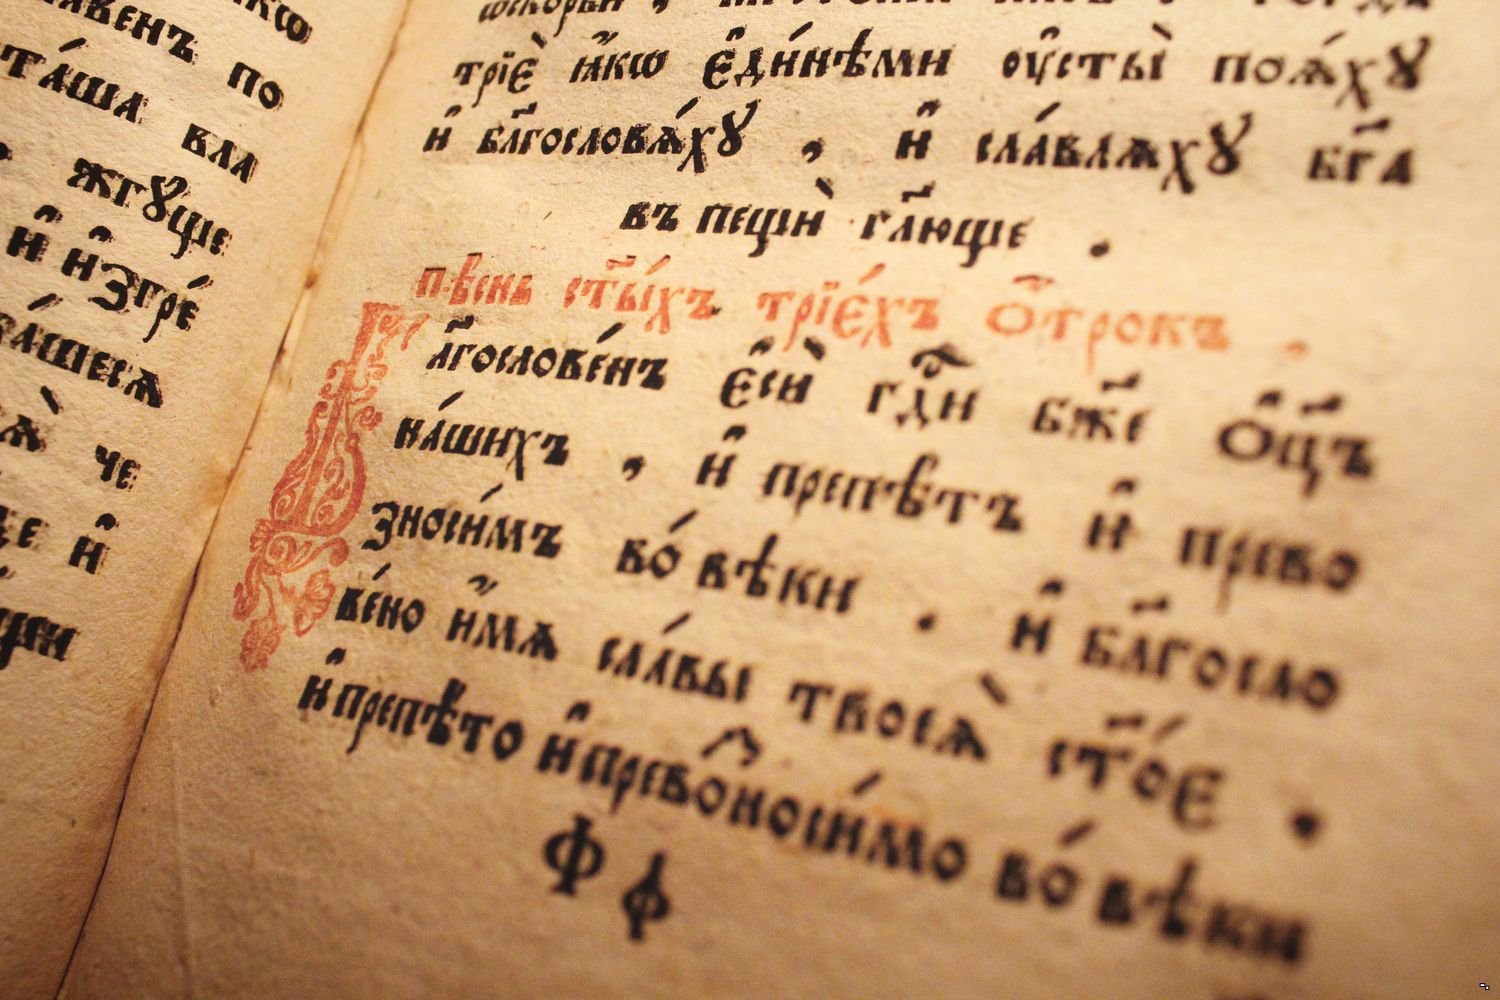 ꙗ҆́кѡ
авенъ по
та́ша вла
жгꙋще
и҆ и҆згре́
ва́шесѧ
че
и҆
трїѐ ꙗ҆́кѡ є҆ди́нѣми ᲂу҆сты̀ поѧ́хꙋ
и҆ бл҃гословѧ́хꙋ , и҆ сла́влѧхꙋ бг҃а
въ пещѝ гл҃юще .
пѣснь ст҃ы́хъ трїе́хъ ѻ҆́трокъ .
Бл҃гослове́нъ є҆сѝ гдⷭ҇и бж҃е ѻ҆ц҃ъ
на́шихъ , и҆ препѣ́тъ и҆ прево
зноси́мъ во́ вѣки . и҆ бл҃госло
ве́но и҆́мѧ сла́вы твоеѧ̀ ст҃о́е .
и҆ препѣ́то и҆ превоⷥ҇носи́мо во́ вѣки
Ф ф